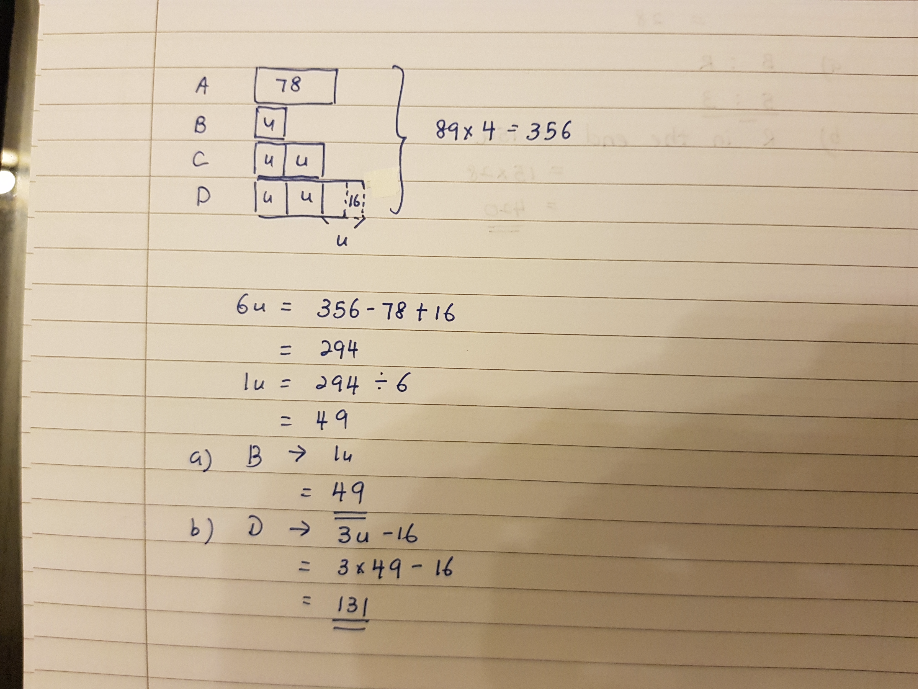 A 78
B u
C u u 89 x 4 = 356
D u u 16
u
6u = 356 - 78 + 16
= 294
1u = 294 ÷ 6
= 49
a) B → 1u
= 49
b) D → 3u - 16
= 3 x 49 - 16
= 131